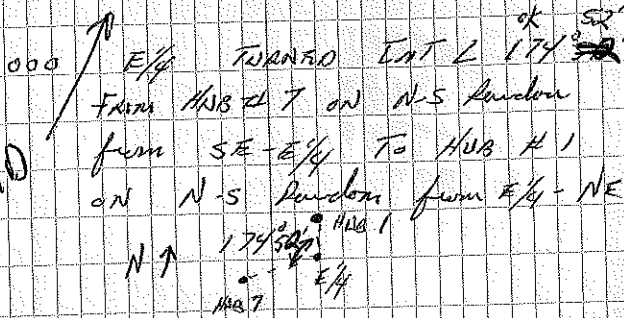 OK 52'
000 E 1/4 TURNED INT ∠ 174°
FROM HUB #7 ON N-S Random
from SE-E 1/4 TO HUB #1
ON N-S Random from E 1/4 - NE
HUB 1
N ↑ 174° 52'
E 1/4
HUB 7